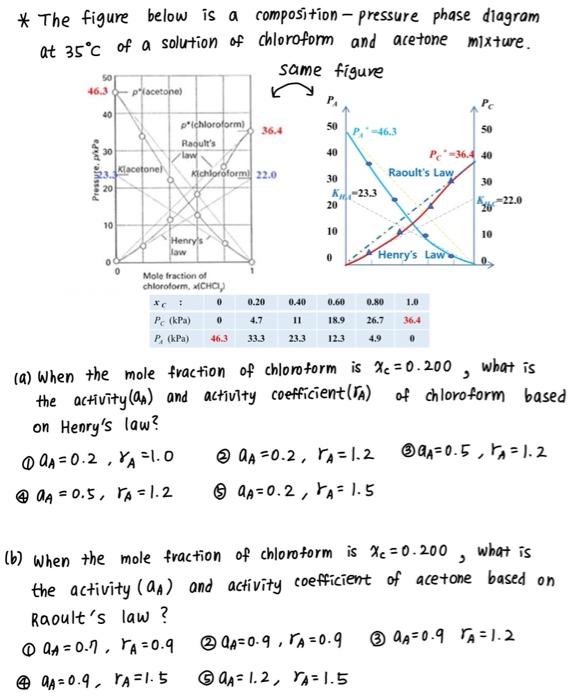 * The figure below is a composition - pressure phase diagram
at 35°C of a solution of chloroform and acetone mixture.
same figure
50
46.3
p*(acetone)
40
p*(chloroform)
36.4
Raoult's
law
30
Pressure, p/kPa
23.3
K(acetone)
K(chloroform)
22.0
20
10
Henry's
law
0
0
1
Mole fraction of
chloroform, x(CHCl₃)
P_A
P_C
50
P_A*=46.3
50
40
P_C*=36.4
40
Raoult's Law
30
30
K_HA=23.3
K_HC=22.0
20
20
10
10
Henry's Law
0
0
x_C : 0 0.20 0.40 0.60 0.80 1.0
P_C (kPa) 0 4.7 11 18.9 26.7 36.4
P_A (kPa) 46.3 33.3 23.3 12.3 4.9 0
(a) When the mole fraction of chloroform is x_C=0.200, what is
the activity(a_A) and activity coefficient(r_A) of chloroform based
on Henry's law?
① a_A=0.2, r_A=1.0 ② a_A=0.2, r_A=1.2 ③ a_A=0.5, r_A=1.2
④ a_A=0.5, r_A=1.2 ⑤ a_A=0.2, r_A=1.5
(b) When the mole fraction of chloroform is x_C=0.200, what is
the activity (a_A) and activity coefficient of acetone based on
Raoult's law?
① a_A=0.7, r_A=0.9 ② a_A=0.9, r_A=0.9 ③ a_A=0.9 r_A=1.2
④ a_A=0.9, r_A=1.5 ⑤ a_A=1.2, r_A=1.5